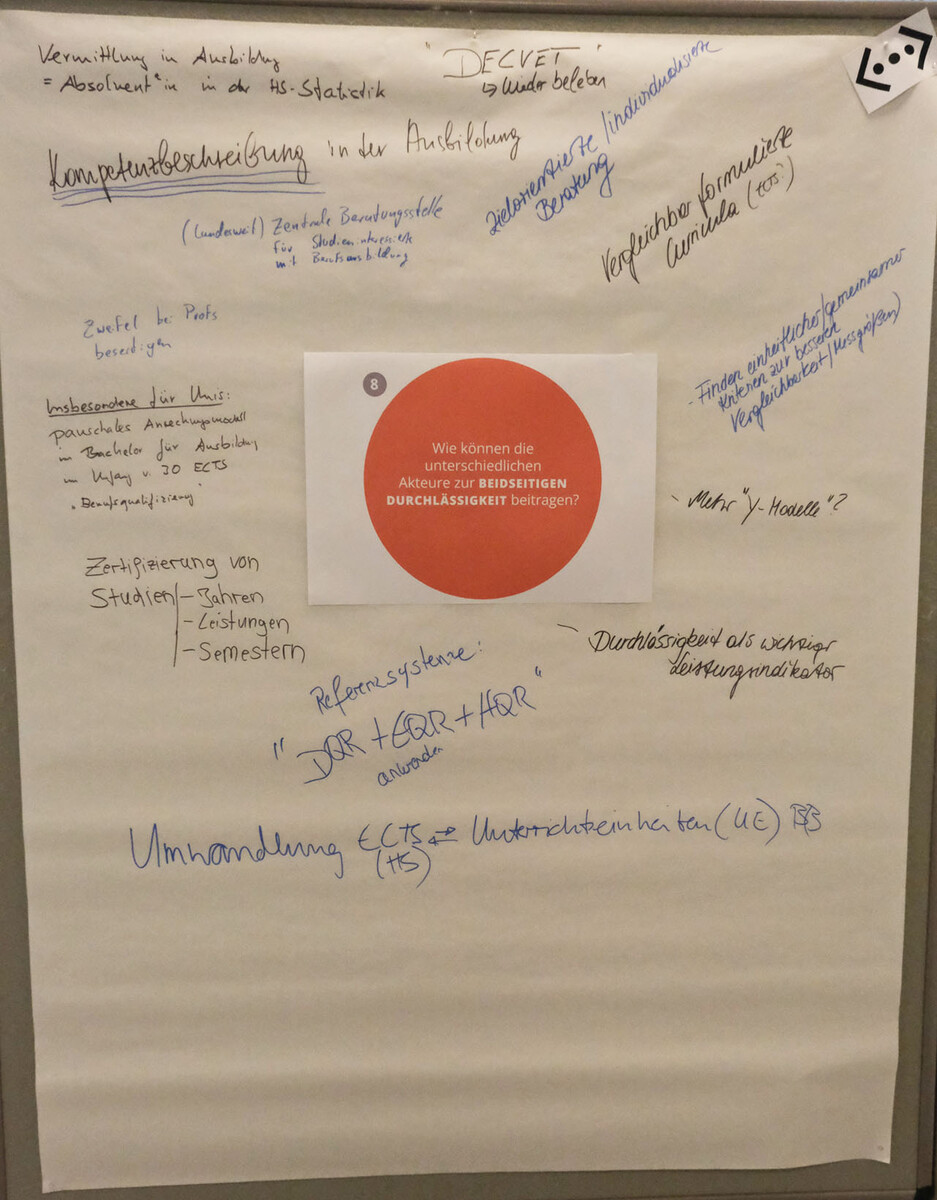 Vermittlung in Ausbildung
= Absolvent*in in der HS-Statistik
"DECVET"
↳ Wieder beleben
Kompetenzbeschreibung in der Ausbildung
zielorientierte/individualisierte
Beratung
Vergleichbar formulierte
Curricula (ECTS?)
(Landesweit) Zentrale Beratungsstelle
für Studieninteressierte
mit Berufsausbildung
Zweifel bei Profs
beseitigen
- Finden einheitlicher/gemeinsamer
Kriterien zur besseren
Vergleichbarkeit/Messgrößen)
Insbesondere für Unis:
pauschales Anrechnungsmodell
im Bachelor für Ausbildung
im Umfang v. 30 ECTS
"Berufsqualifizierung"
8
Wie können die
unterschiedlichen
Akteure zur BEIDSEITIGEN
DURCHLÄSSIGKEIT beitragen?
- Mehr "Y-Modelle"?
Zertifizierung von
Studien - Jahren
- Leistungen
- Semestern
- Durchlässigkeit als wichtiger
Leistungsindikator
Referenzsysteme:
"DQR + EQR + HQR"
anwenden
Umwandlung ECTS ⇄ Unterrichtseinheiten (UE) BB
(HS)